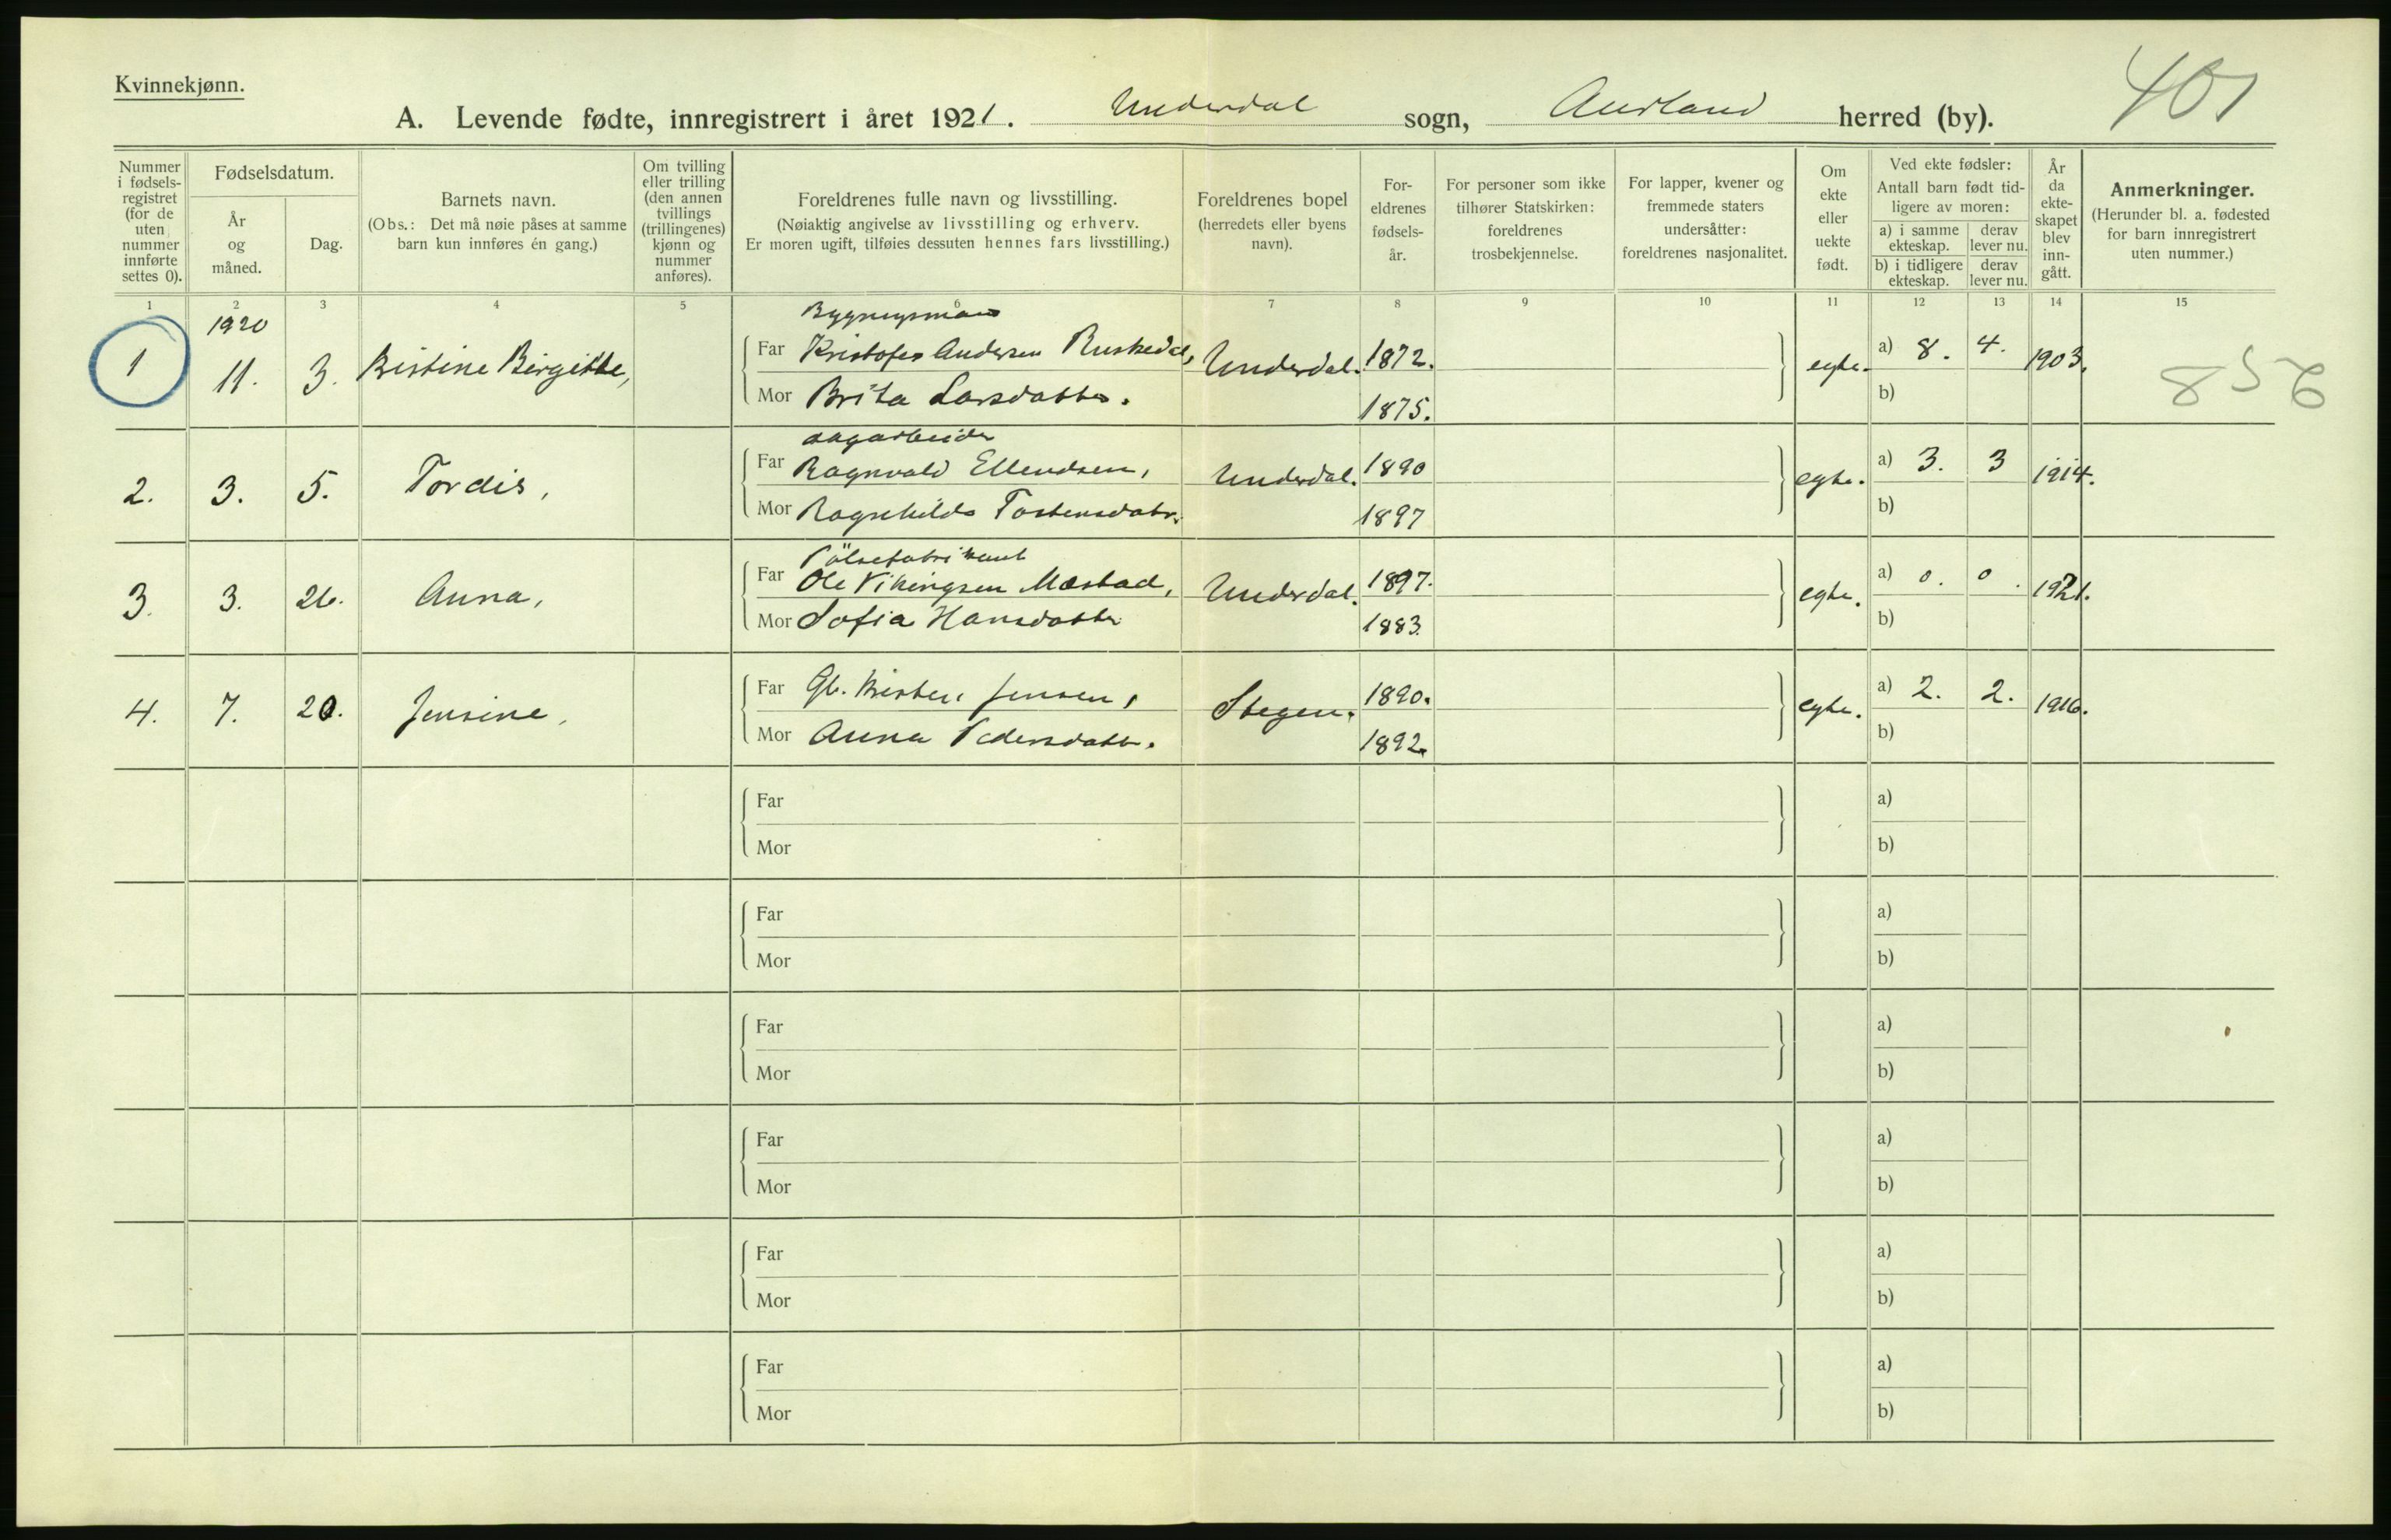 Kvinnekjønn.
401
A. Levende fødte, innregistrert i året 1921. Underdal sogn, Aurland herred (by).
Nummer i fødselsregistret (for de uten nummer innførte settes 0).
Fødselsdatum.
År og måned.
Dag.
Barnets navn.
(Obs.: Det må nøie påses at samme barn kun innføres én gang.)
Om tvilling eller trilling (den annen tvillings (trillingenes) kjønn og nummer anføres).
Foreldrenes fulle navn og livsstilling.
(Nøiaktig angivelse av livsstilling og erhverv.
Er moren ugift, tilføies dessuten hennes fars livsstilling.)
Foreldrenes bopel
(herredets eller byens navn).
Foreldrenes fødselsår.
For personer som ikke tilhører Statskirken: foreldrenes trosbekjennelse.
For lapper, kvener og fremmede staters undersåtter: foreldrenes nasjonalitet.
Om ekte eller uekte født.
Ved ekte fødsler:
Antall barn født tidligere av moren:
a) i samme ekteskap. derav lever nu.
b) i tidligere ekteskap. derav lever nu.
År da ekteskapet blev inngått.
Anmerkninger.
(Herunder bl. a. fødested for barn innregistrert uten nummer.)
1 2 3 4 5 6 7 8 9 10 11 12 13 14 15
1920
Bygningsmann
1 11. 3. Kristine Birgitte, Far Kristofer Andersen Ruskedal, Underdal. 1872. egte. a) 8. 4. 1903.
Mor Brita Larsdatter. 1875. b)
856
dagarbeider
2. 3. 5. Tordis, Far Ragnvald Ellendsen, Underdal. 1890 egte. a) 3. 3 1914.
Mor Ragnhilda Tostensdatr. 1897 b)
Pölsefabrikant
3. 3. 26. Anna, Far Ole Vikingsen Mæstad, Underdal. 1897. egte. a) 0. 0. 1921.
Mor Sofia Hansdatter 1883. b)
4. 7. 20. Jensine, Far Gb. Kristen Jensen, Stegen. 1890. egte. a) 2. 2. 1916.
Mor Anna Pedersdatter. 1892. b)
Far a)
Mor b)
Far a)
Mor b)
Far a)
Mor b)
Far a)
Mor b)
Far a)
Mor b)
Far a)
Mor b)